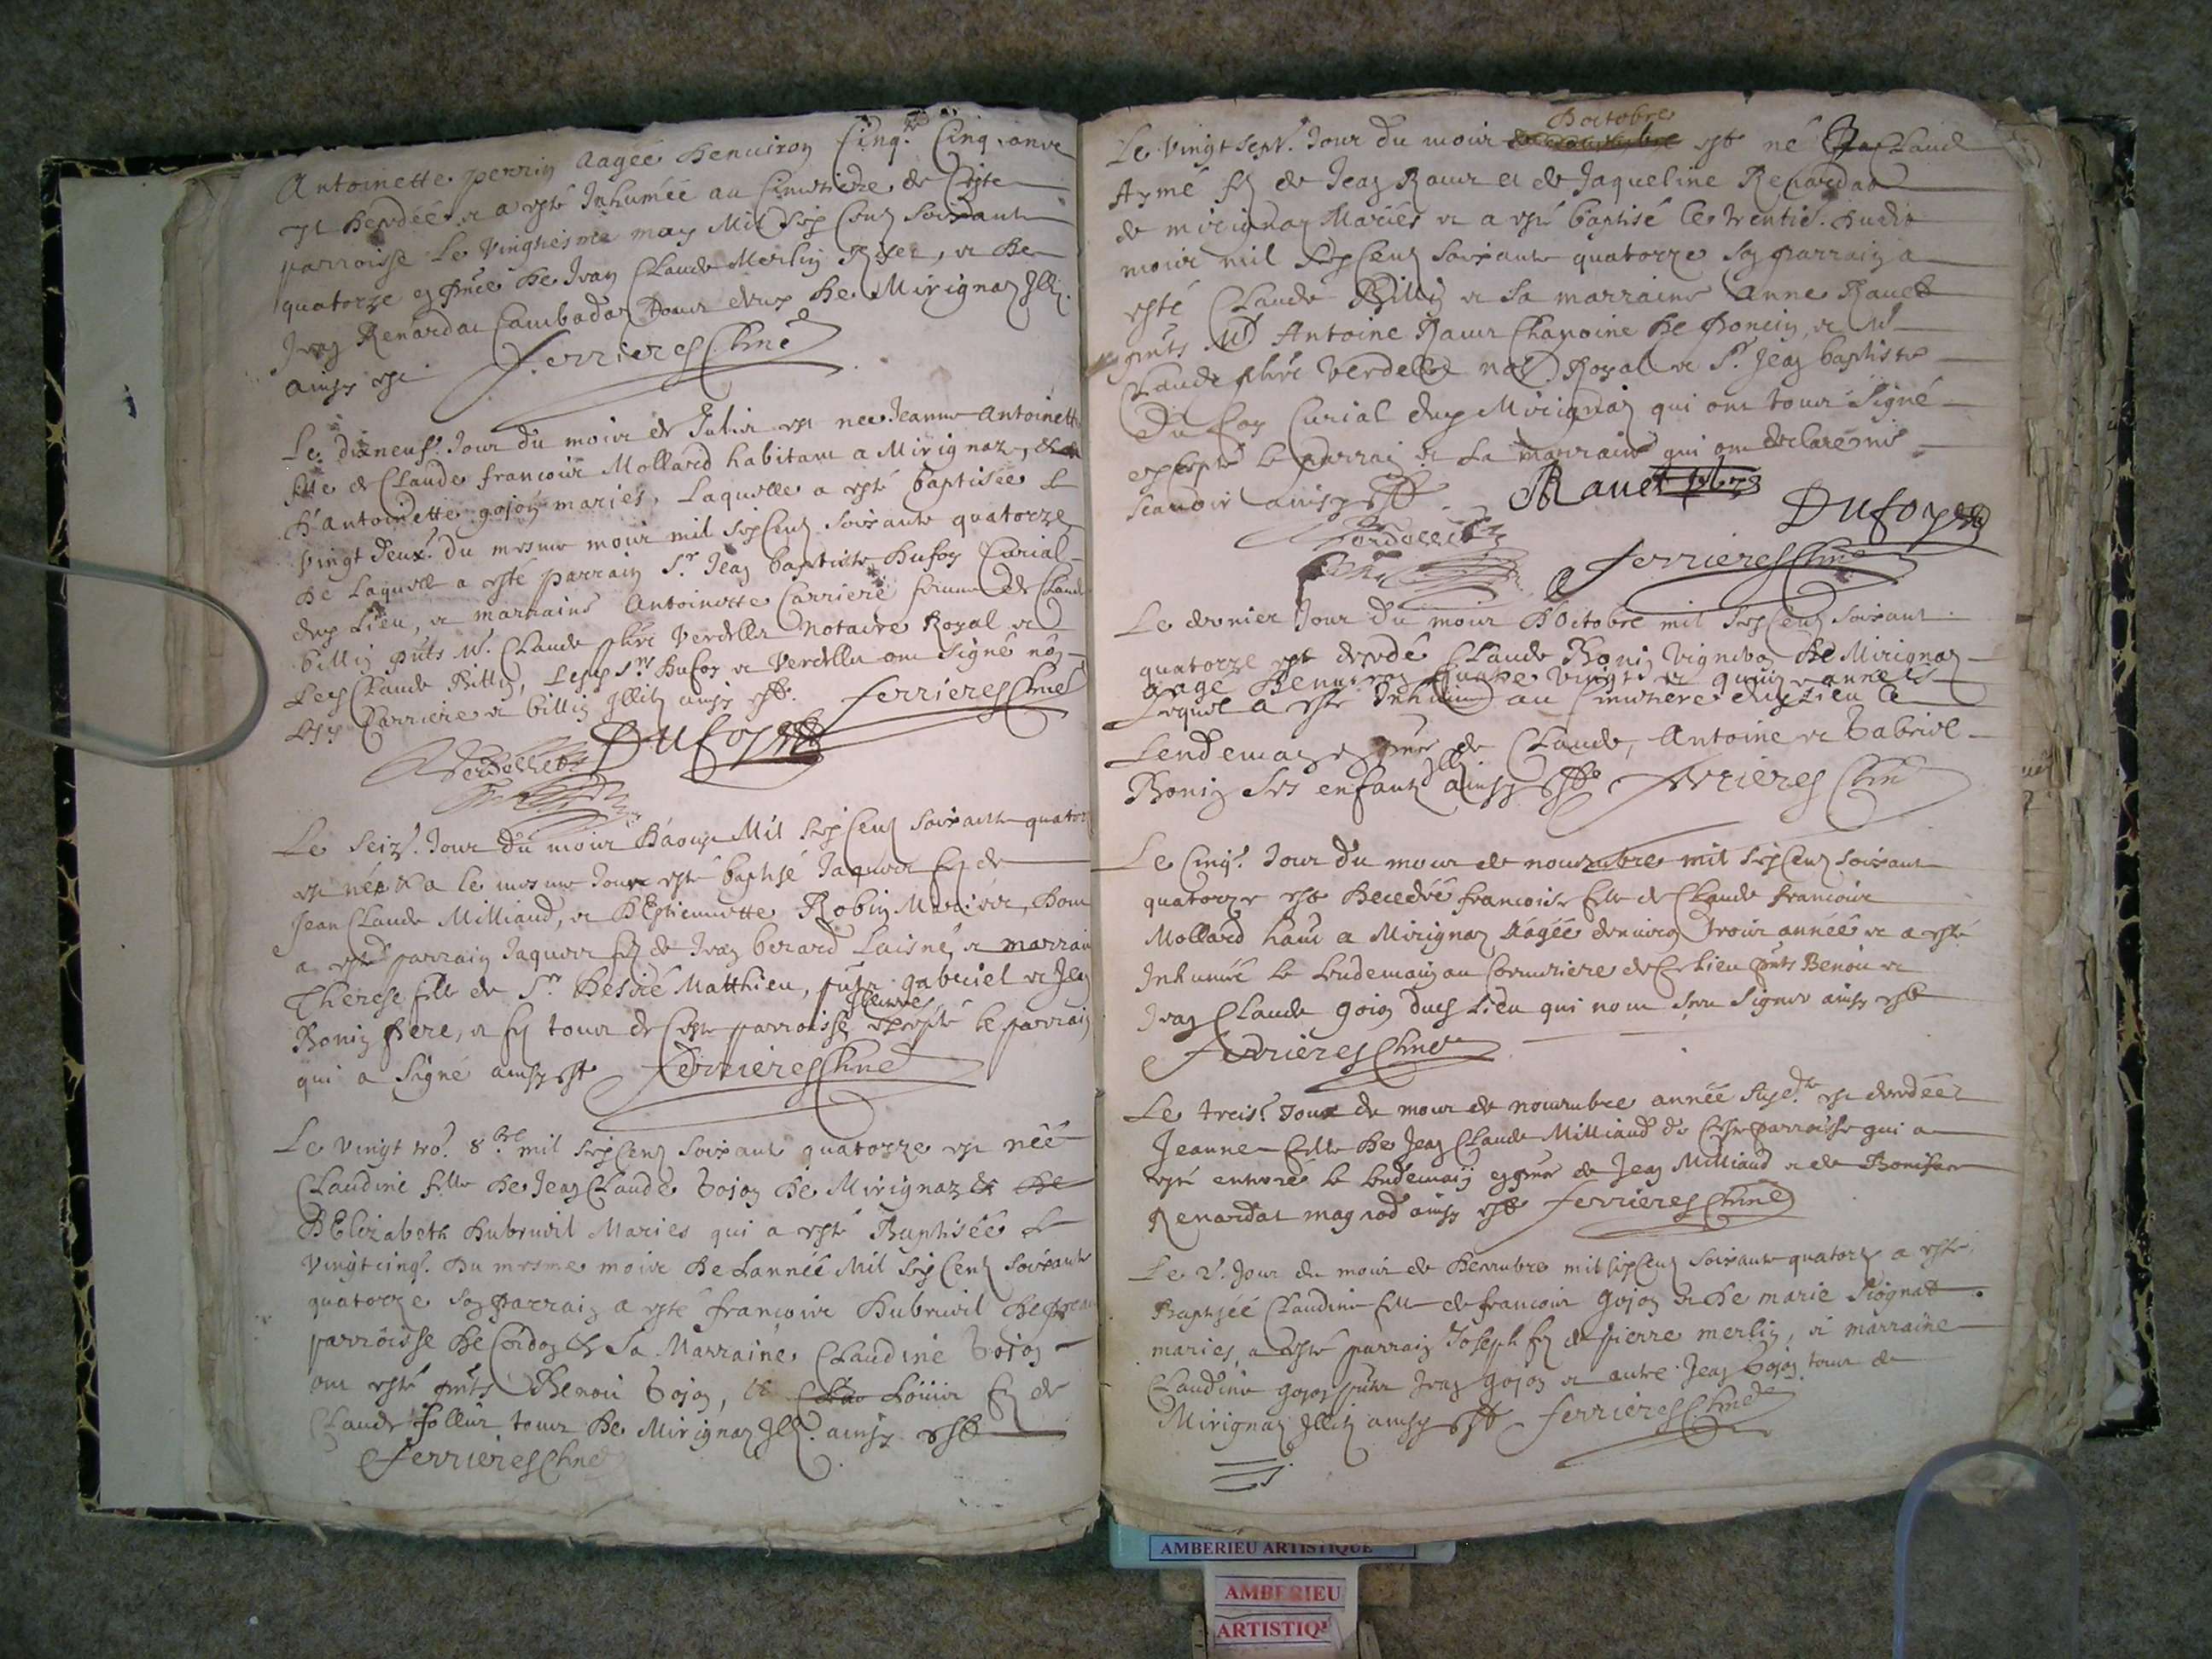 Antoinette perrin aagée denuiron Cinq.te Cinq ans
est decedée et a esté Inhumée au Cimetiere de Ceste
parroisse le Vingtiesme may Mil Six Centz soixante
quatorze en pnce de Jean Claude Merlin Rosset, et de
Jean Renardat Cambadoz tous deux de Mirignaz Illi.
ainsy est ferrieres Curé
Le dixneuf.e Jour du mois de Julier est nee Jeanne Antoinette
fille de Claude francois Mollard habitant a Mirignaz, et
d'Antoinette gojon mariés, Laquelle a esté baptisée le
Vingt deux.e du mesme mois mil six Centz soixante quatorze
de Laquelle a esté parrain S.r Jean baptiste dufoy Curial
dud Lieu, et marraine Antoinette Carriere femme de Claude
billin pnts M.e Claude phlle Verdellet Notaire Royal et
led Claude Billin, Lesd S.rs Dufoy et Verdellet ont signé non
lesd Carriere et billin Illitz ainsy est. ferrieres Curé
Verdellet Dufoy
Le seiz.e Jour du mois d'aoust Mil six Centz soixante quatorze
est né et a le mesme Jour esté baptisé Jaques filz de
Jean Claude Milliand, et d'Estiennette Robin Mariés, dont
a esté parrain Jaques filz de Jean berard Laisné, et marraine
Therese fille de S.r Desiré Matthieu, pnts gabriel et Jean
Bonin pere, et filz tous de Ceste parroisse Illitterés excepté le parrain
qui a Signé ainsy est ferrieres Curé
Le Vingt tro.e 8.bre mil six Centz soixante quatorze est née
Claudine fille de Jean Claude Gojon de Mirignaz et de
D'Elizabeth dubreuil Maries qui a esté Baptisée le
Vingt cinq.e du mesme mois de Lannée Mil six Centz soixante
quatorze son parrain a esté francois dubreuil de
parroisse de Cerdon et sa Marraine Claudine Gojon
ont esté pnts Benoit Gojon, et Louis filz de
Claude follier tous de Mirignaz Illi. ainsy est
ferrieres Curé
Le Vingt sept.e Jour du mois d'octobre est né Claude
Aymé filz de Jean Rauet et de Jaqueline Renardat
de mirignaz Mariés et a esté baptisé le trentie.e dudit
mois mil six Centz soixante quatorze son parrain a
esté Claude Billin et sa marraine Anne Rauet
pnts M.e Antoine Rauet Chanoine de Poncin, et M.e
Claude phlle Verdellet no.re Royal et S.r Jean baptiste
Dufoy Curial dud Mirignaz qui ont tous Signé
excepté le parrain et La marraine qui ont declaré ne
scauoir ainsy est. Rauet Dufoy
Verdellet ferrieres Curé
Le dernier Jour du mois d'Octobre mil six Centz soixante
quatorze est decedé Claude Bonin Vigneron de Mirignaz
aagé denuiron quatre Vingts et quinze années
Lequel a esté Inhumé au Cimetiere dud Lieu le
Lendemain en pnce de Claude, Antoine et Gabriel
Bonin ses enfantz Illi. ainsy est ferrieres Curé
Le Cinq.e Jour du mois de nouembre mil six Centz soixante
quatorze est decedée francoise fille de Claude francois
Mollard habit a Mirignaz aagée denuiron trois année et a esté
Inhumée le lendemain au Cemetiere de Ce Lieu pnts Benoit et
Jean Claude gojon dud Lieu qui n'ont sceu signer ainsy est
ferrieres Curé
Le treis.e Jour du mois de nouembre année susd.te est decedée
Jeanne fille de Jean Claude Milliand de Ceste parroisse qui a
esté enterré le lendemain en pnce de Jean Milliand et de Boniface
Renardat magnod ainsy est ferrieres Curé
Le 2.e Jour du mois de decembre mil six Centz soixante quatorz a esté
Baptisée Claudine fille de francois gojon et de marie
mariés, a esté parrain Joseph filz de pierre merlin, et marraine
Claudine gojon pnts Jean gojon et autre Jean Gojon tous de
Mirignaz Illitz ainsy est ferrieres Curé
AMBERIEU ARTISTIQUE
AMBERIEU
ARTISTIQU